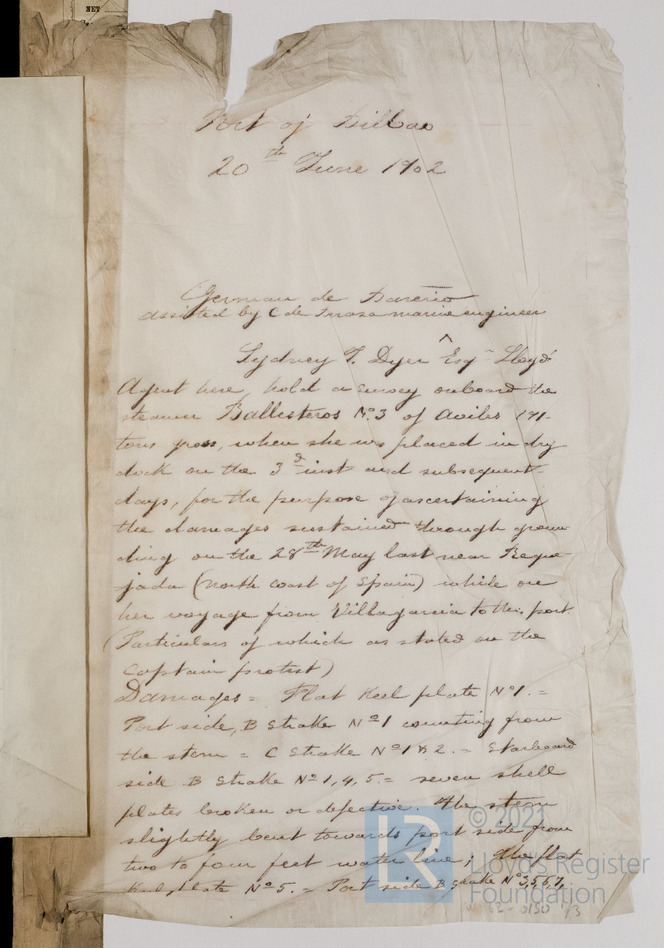 NET
Port of Bilbao
20th June 1902
German de
assisted by C de marine engineer
^
Sydney J. Dyer Esqre Lloyds
Agent here, hold a survey onboard the
steamer Ballesteros No 3 of Aviles 171
tons gross, when she was placed in dry
dock on the 3d inst and subsequent
days, for the purpose of ascertaining
the damages sustained through groun
ding on the 28th May last near Reque
jada (north coast of Spain) while on
her voyage from Villagarcia to this port
(Particulars of which as stated on the
Captain protest)
Damages = Flat keel plate No 1. =
Port side, B Strake No 1 counting from
the stem = C Strake No 1 & 2. = Starboard
side B Strake No 1, 4, 5. = seven shell
plates broken or defective. The stem
slightly bent towards port side from
two to four feet water line; the flat
keel plate No 5. = Port side B strake No 3,5,6,7,
© 2021
Lloyd's Register
Foundation